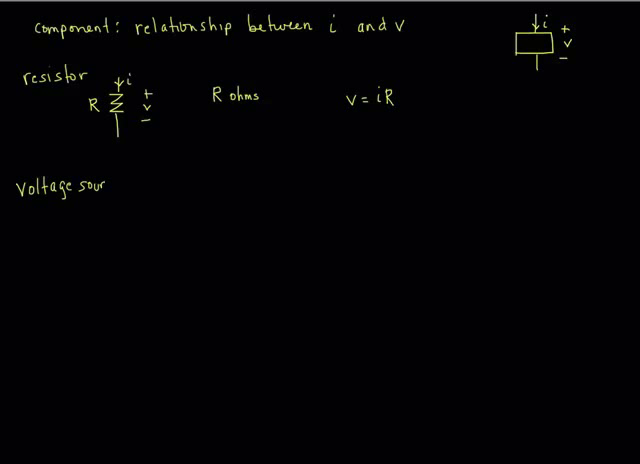 component: relationship between i and v
i
+
v
-
resistor
i
R
+
v
-
R ohms
v = iR
voltage sour